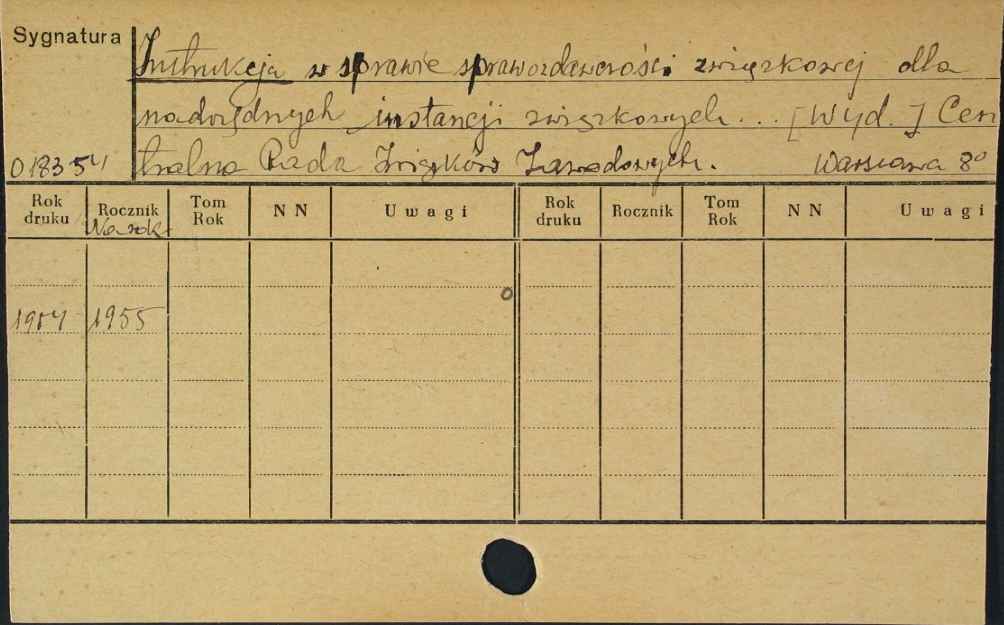 Sygnatura
Instrukcja w sprawie sprawozdawczości związkowej dla
nadrzędnych instancji związkowych... [Wyd.] Cen
018354 tralna Rada Związków Zawodowych. Warszawa 8°
Rok druku Rocznik Na rok Tom Rok NN Uwagi Rok druku Rocznik Tom Rok NN Uwagi
1954 1955